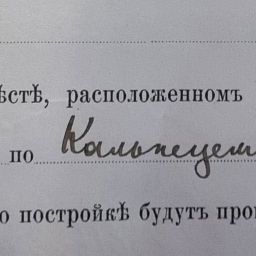 ѣстѣ, расположенномъ
по Кальнецем
о постройкѣ будутъ про